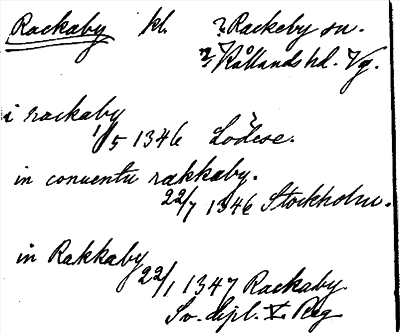 Rackaby kl. ? Rackeby sn.
? Kållands hd. Vg.
i rackaby
1/5 1346 Lödese.
in conuentu rakkaby.
22/7 1346 Stockholm.
in Rakkaby
22/1 1347 Rackaby
Sv. dipl. V. Perg